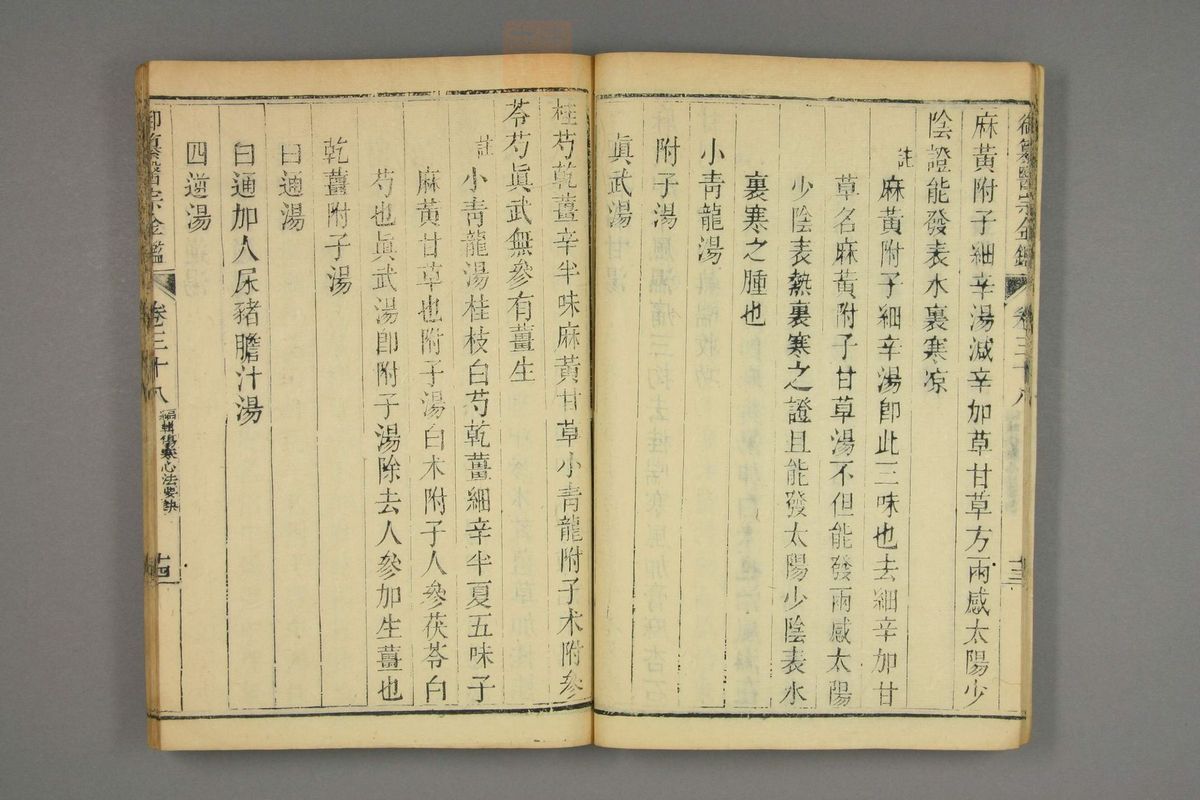 御纂醫宗金鑑 卷三十八 十三
麻黃附子細辛湯減辛加草甘草方兩感太陽少
陰證能發表水裏寒凉
註 麻黃附子細辛湯卽此三味也去細辛加甘
草名麻黃附子甘草湯不但能發兩感太陽
少陰表熱裏寒之證且能發太陽少陰表水
裏寒之腫也
小靑龍湯
附子湯
眞武湯
桂芍乾薑辛半味麻黃甘草小靑龍附子术附參
苓芍眞武無參有薑生
註 小靑龍湯桂枝白芍乾薑細辛半夏五味子
麻黃甘草也附子湯白术附子人參茯苓白
芍也眞武湯卽附子湯除去人參加生薑也
乾薑附子湯
白通湯
白通加人尿豬膽汁湯
四逆湯
御纂醫宗金鑑 卷三十八 編輯傷寒心法要訣 十四